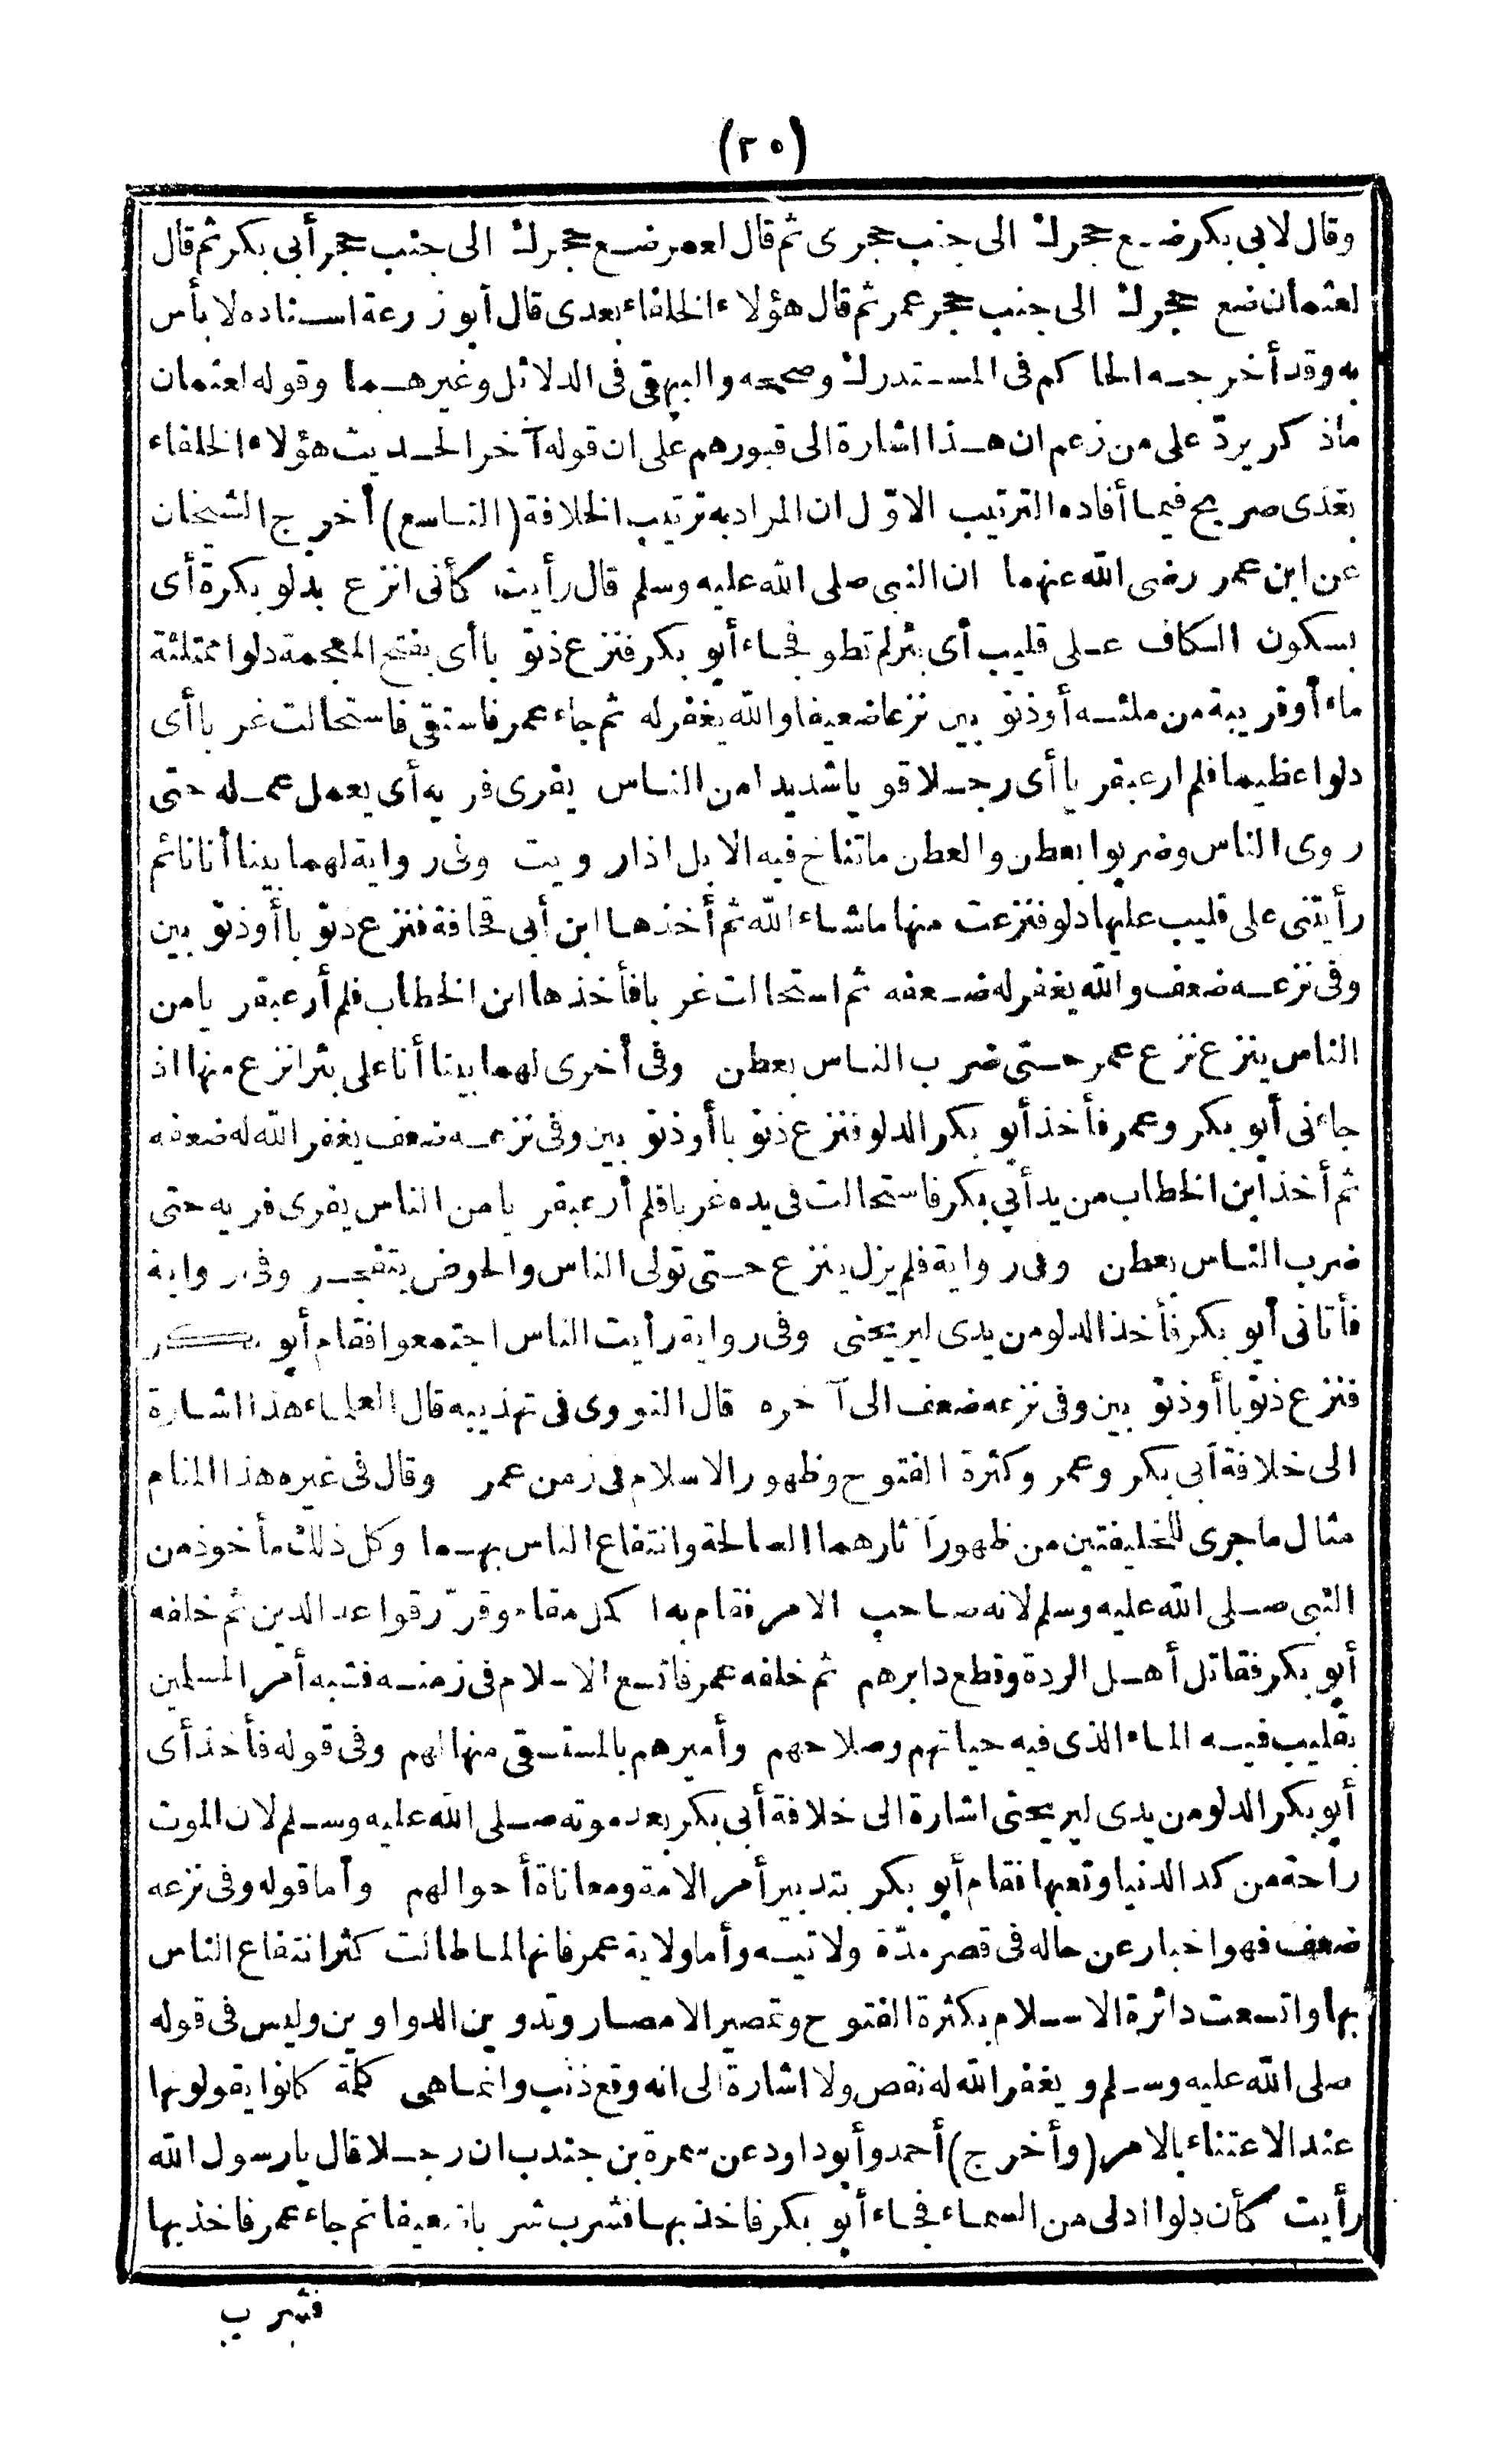 (٢٠)
وقال لابى بكر ضع حجرك الى جنب حجرى ثم قال لعمر ضع حجرك الى جنب حجر أبى بكر ثم قال
لعثمان ضع حجرك الى جنب حجر عمر ثم قال هؤلاء الخلفاء بعدى قال أبو زرعة اسناده لا بأس
به وقد أخرجه الحاكم فى المستدرك وصححه والبيهقى فى الدلائل وغيرهما وقوله لعثمان
ماذكر يردّ على من زعم ان هذا اشارة الى قبورهم على ان قوله آخر الحديث هؤلاء الخلفاء
بعدى صريح فيما أفاده الترتيب الاوّل ان المراد به ترتيب الخلافة (التاسع) أخرج الشيخان
عن ابن عمر رضى الله عنهما ان النبى صلى الله عليه وسلم قال رأيت كأنى انزع بدلو بكرة أى
بسكون الكاف على قليب أى بئر لم تطو فجاء أبو بكر فنزع ذنوبا أى بفتح المعجمة دلوا ممتلئة
ماء أو قريبة من ملئه أو ذنوبين نزعا ضعيفا والله يغفر له ثم جاء عمر فاستقى فاستحالت غربا أى
دلوا عظيما فلم ار عبقريا أى رجلا قويا شديدا من الناس يفرى فريه أى يعمل عمله حتى
روى الناس وضربوا بعطن والعطن ماتناخ فيه الابل اذا رويت وفى رواية لهما بينا أنا نائم
رأيتنى على قليب عليها دلو فنزعت منها ماشاء الله ثم أخذها ابن أبى قحافة فنزع ذنوبا أو ذنوبين
وفى نزعه ضعف والله يغفر له ضعفه ثم استحالت غربا فأخذها ابن الخطاب فلم أر عبقريا من
الناس ينزع نزع عمر حتى ضرب الناس بعطن وفى أخرى لهما بينا أنا على بئر انزع منها اذ
جاءنى أبو بكر وعمر فأخذ أبو بكر الدلو فنزع ذنوبا أو ذنوبين وفى نزعه ضعف يغفر الله له ضعفه
ثم أخذ ابن الخطاب من يد أبى بكر فاستحالت فى يده غربا فلم أر عبقريا من الناس يفرى فريه حتى
ضرب الناس بعطن وفى رواية فلم يزل ينزع حتى تولى الناس والحوض يتفجر وفى رواية
فأتانى أبو بكر فأخذ الدلو من يدى ليريحنى وفى رواية رأيت الناس اجتمعوا فقام أبو بكر
فنزع ذنوبا أو ذنوبين وفى نزعه ضعف الى آخره قال النووى فى تهذيبه قال العلماء هذا اشارة
الى خلافة أبى بكر وعمر وكثرة الفتوح وظهور الاسلام فى زمن عمر وقال فى غيره هذا المنام
مثال ماجرى للخليفتين من ظهور آثارهما الصالحة وانتفاع الناس بهما وكل ذلك مأخوذ من
النبى صلى الله عليه وسلم لانه صاحب الامر فقام به اكمل مقام وقرّر قواعد الدين ثم خلفه
أبو بكر فقاتل أهل الردة وقطع دابرهم ثم خلفه عمر فاتسع الاسلام فى زمنه فشبه أمر المسلمين
بقليب فيه الماء الذى فيه حياتهم وصلاحهم وأميرهم بالمستقى منها لهم وفى قوله فأخذ أى
أبو بكر الدلو من يدى ليريحنى اشارة الى خلافة أبى بكر بعد موته صلى الله عليه وسلم لان الموت
راحة من كد الدنيا وتعبها فقام أبو بكر بتدبير أمر الامة ومعاناة أحوالهم وأما قوله وفى نزعه
ضعف فهو اخبار عن حاله فى قصر مدّة ولايته وأما ولاية عمر فانها لما طالت كثر انتفاع الناس
بها واتسعت دائرة الاسلام بكثرة الفتوح وتمصير الامصار وتدوين الدواوين وليس فى قوله
صلى الله عليه وسلم ويغفر الله له نقص ولا اشارة الى انه وقع ذنب وانما هى كلمة كانوا يقولونها
عند الاعتناء بالامر (وأخرج) أحمد وأبو داود عن سمرة بن جندب ان رجلا قال يارسول الله
رأيت كأن دلوا ادلى من السماء فجاء أبو بكر فاخذ بها فشرب شربا ضعيفا ثم جاء عمر فاخذ بها
فشرب